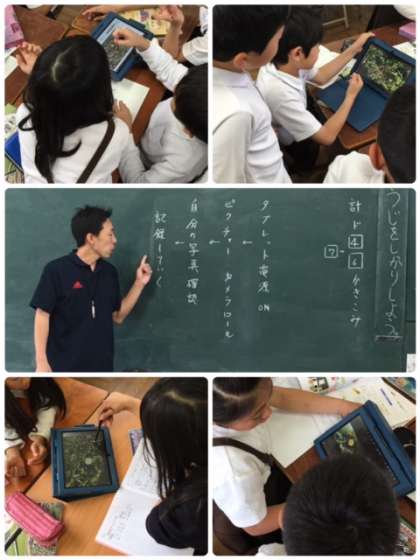 うじをしっかりしよう。
計ド 4 - 6 かきこみ
7
タブレット電源 ON
↓
ピクチャー カメラロール
↓
自分の写真確認
↓
記録していく